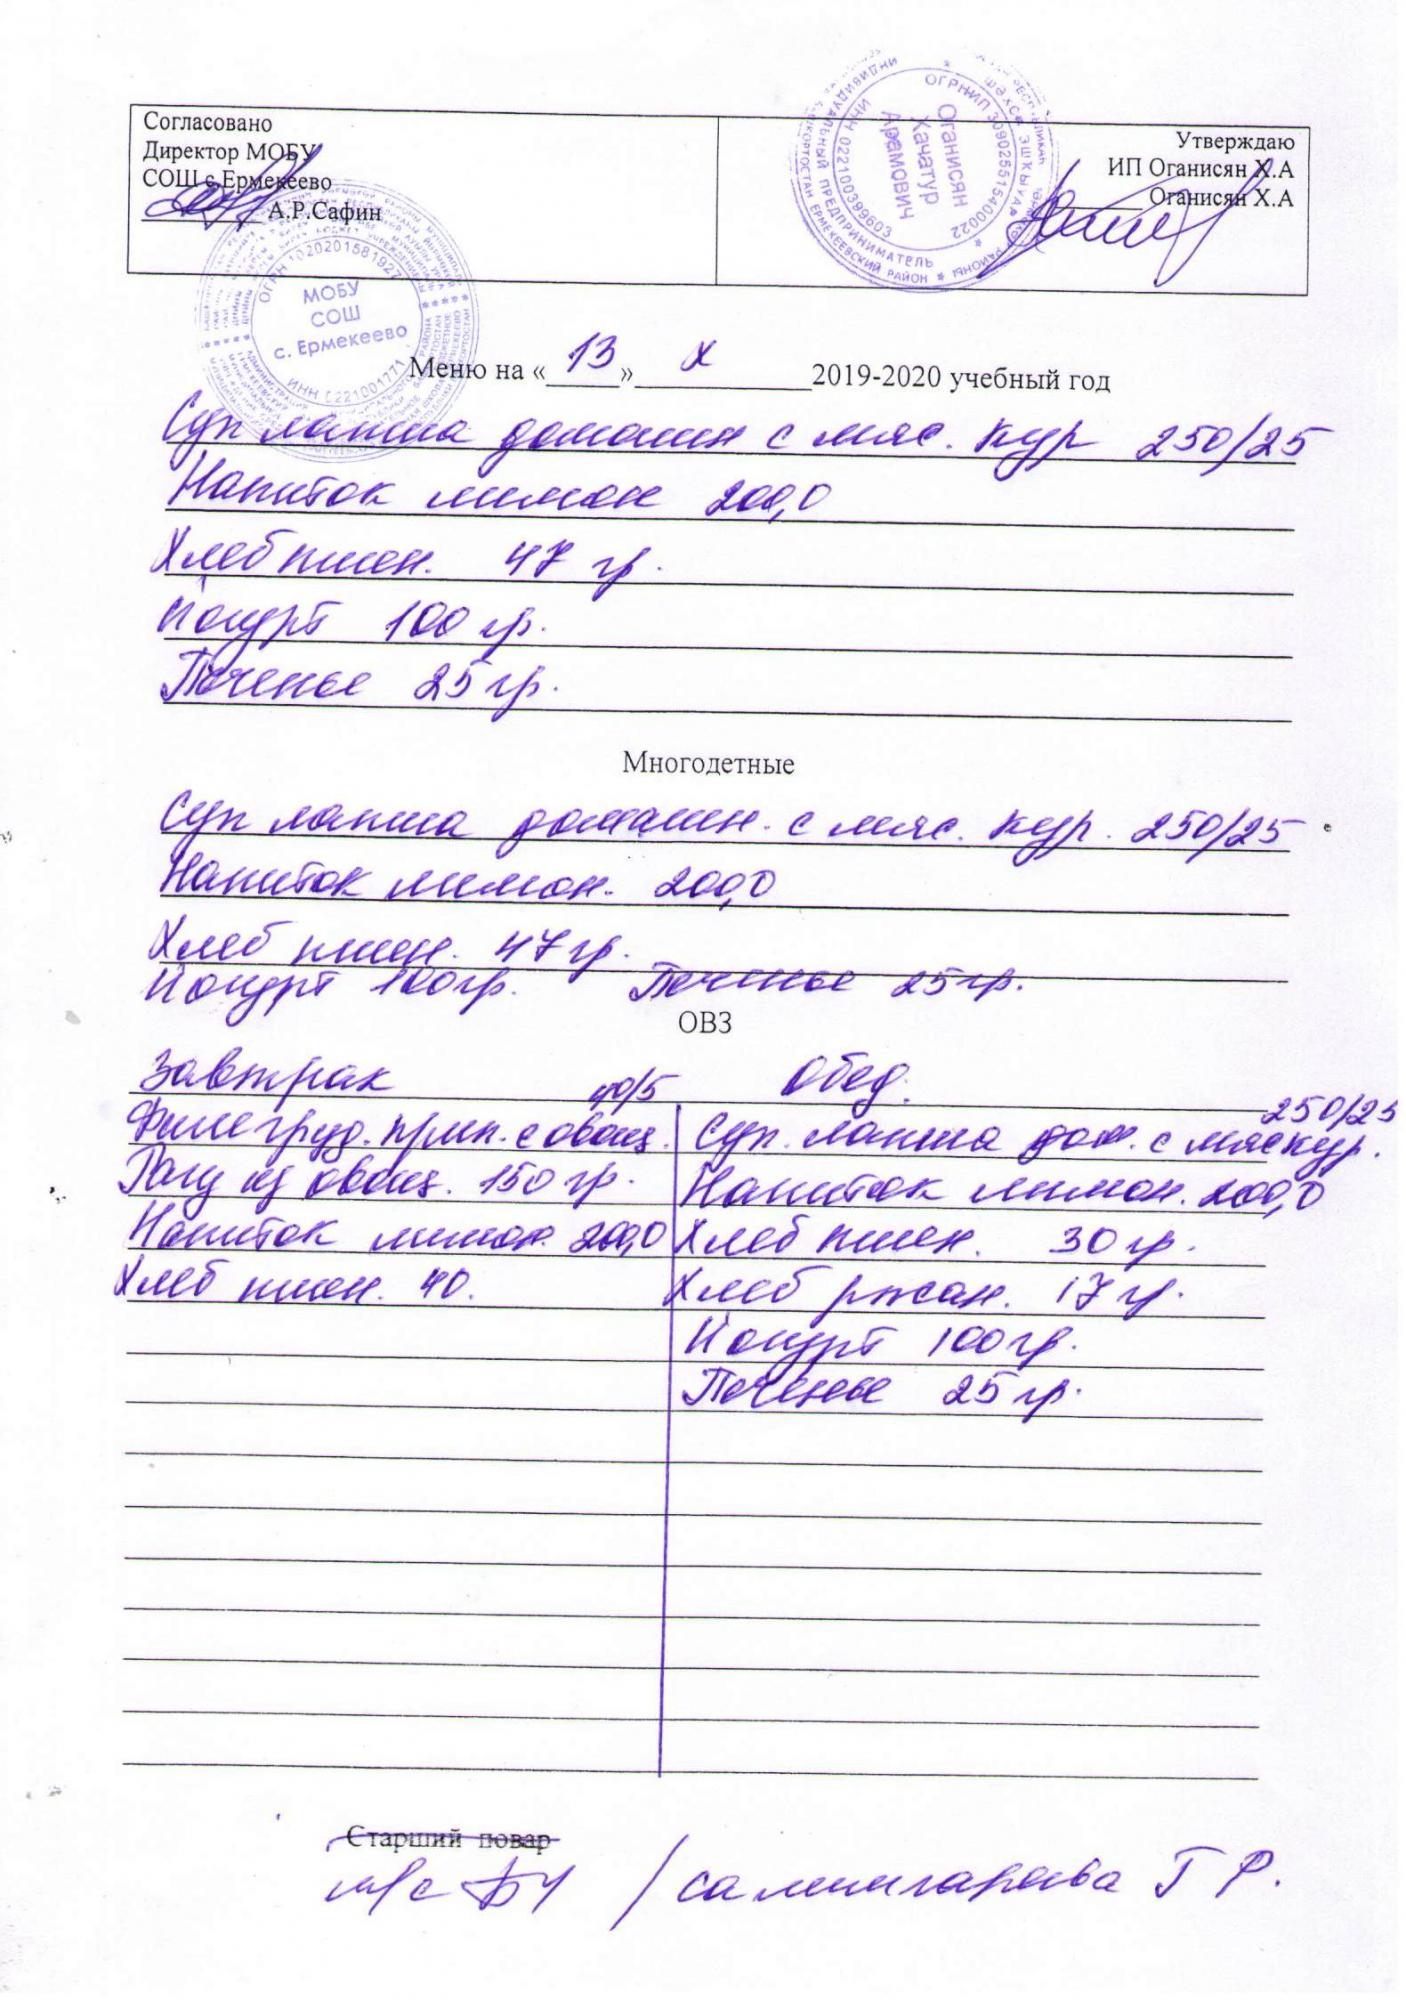 Согласовано
Директор МОБУ
СОШ с Ермекеево
А.Р.Сафин
Утверждаю
ИП Оганисян Х.А
Оганисян Х.А
ОГРНИП 309025515400022
Оганисян
Хачатур
Арамович
ИНН 022100399603
ИНДИВИДУАЛЬНЫЙ ПРЕДПРИНИМАТЕЛЬ
ЕРМЕКЕЕВСКИЙ РАЙОН
ОГРН 1020201581927
МОБУ
СОШ
с. Ермекеево
ИНН 0221001771
Меню на «13» X 2019-2020 учебный год
Суп лапша домашн с мяс. кур 250/25
Напиток лимон 200,0
Хлеб пшен. 47 гр.
Йогурт 100 гр.
Печенье 25 гр.
Многодетные
Суп лапша домашн. с мяс. кур. 250/25
Напиток лимон. 200,0
Хлеб пшен. 47 гр.
Йогурт 100 гр. Печенье 25 гр.
ОВЗ
Завтрак Обед.
Филе груд. прип. с овощ.
Рагу из овощ. 150 гр.
Напиток лимон. 200,0
Хлеб пшен. 40.
250/25
Суп. лапша дом. с мяс кур.
Напиток лимон. 200,0
Хлеб пшен. 30 гр.
Хлеб ржан. 17 гр.
Йогурт 100 гр.
Печенье 25 гр.
Старший повар
/ Салимгараева Г Р.